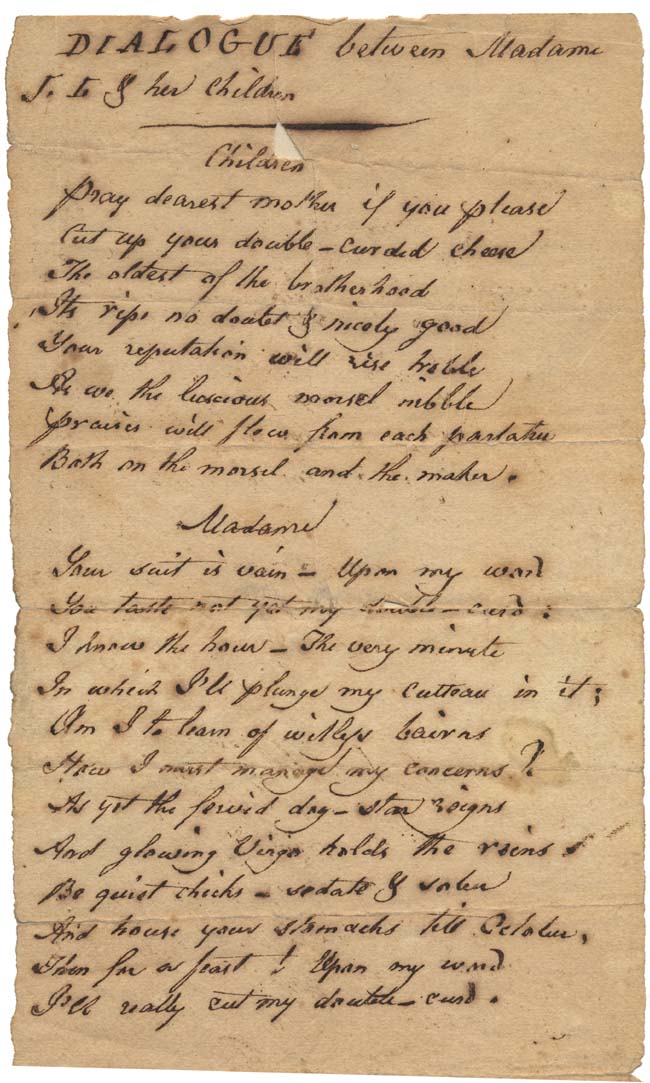 DIALOGUE between Madame
J. L & her children
Children
Pray dearest mother if you please
Cut up your double-curded cheese
The oldest of the brotherhood
Its ripe no doubt & nicely good
Your reputation will rise treble
As we the luscious morsel nibble
Praises will flow from each partaker
Both on the morsel and the maker.
Madame
Your suit is vain - Upon my word
You taste not yet my double-curd:
I know the hour - The very minute
In which I'll plunge my cutteau in it;
Am I to learn of witless bairns
How I must manage my concerns?
As yet the fervid dog-star reigns
And glowing Virgo holds the reins
Be quiet chicks - sedate & sober
And house your stomachs till October,
Then for a feast! Upon my word
I'll really cut my double-curd.